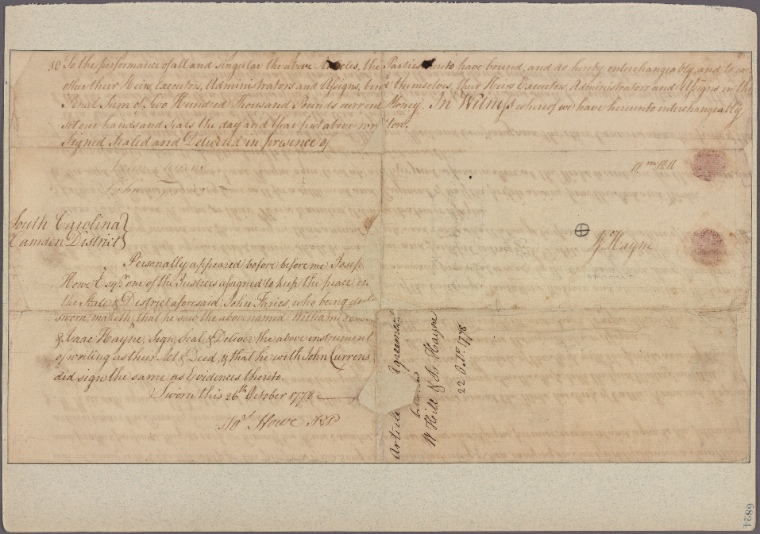 10 To the performance of all and singular the above Articles, the Parties hereunto have bound, and do hereby interchangeably and to each
other their Heirs Executors, Administrators and Assigns, bind themselves, their Heirs Executors Administrators and Assigns in the
Penal Sum of two Hundred Thousand Pounds current Money. In Witness whereof we have hereunto interchangeably
set our hands and Seals the day and Year first above written.
Signed Sealed and Delivered in presence of
Wm Hill
Is. Hayne
South Carolina
Camden District
Personally appeared before before me Joseph
Howe Esqr. one of the Justices assigned to keep the peace in
the State & District aforesaid John Faries, who being duly
sworn maketh, that he saw the above named William
& Isaac Hayne, Sign, Seal & Deliver the above instrument
of writing as their Act & Deed, & that he with John Currens
did sign the same as Evidences thereto.
Sworn this 26th October 1778
Jos. Howe J.P.
Article Agreement
between
W Hill & Is. Hayne
22 1778
6824